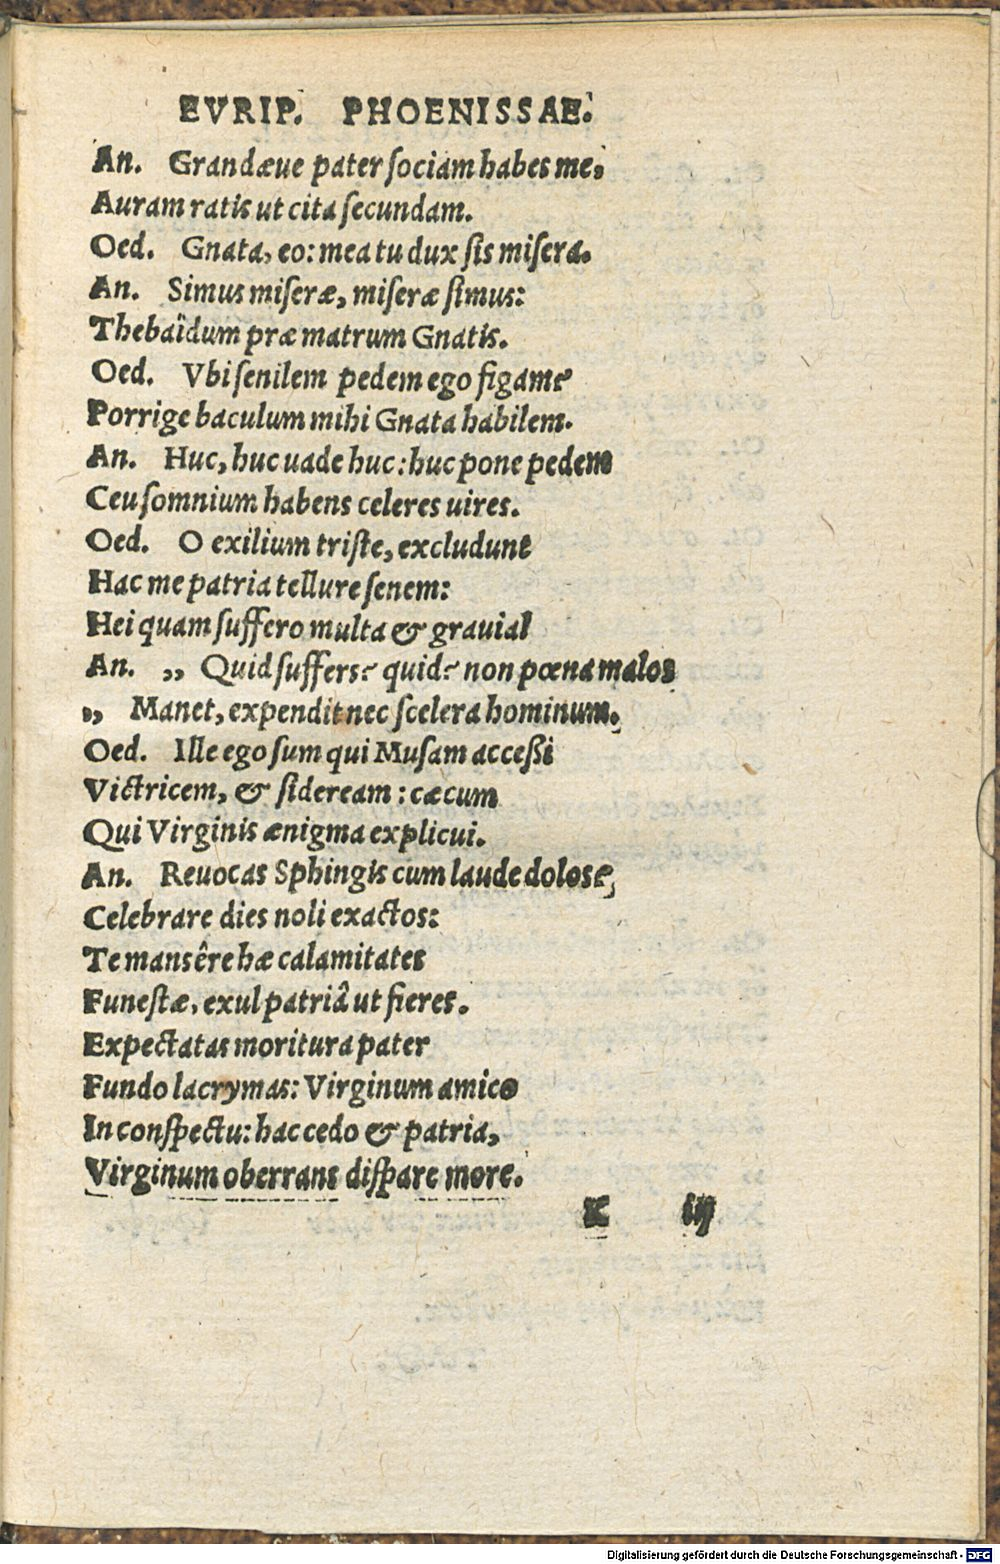 EVRIP. PHOENISSAE.
An. Grandæue pater ſociam habes me,
Auram ratis ut cita ſecundam.
Oed. Gnata, eo: mea tu dux ſis miſera.
An. Simus miſeræ, miſeræ ſimus:
Thebaïdum præ matrum Gnatis.
Oed. Vbi ſenilem pedem ego figam?
Porrige baculum mihi Gnata habilem.
An. Huc, huc uade huc: huc pone pedem
Ceu ſomnium habens celeres uires.
Oed. O exilium triſte, excludunt
Hac me patria tellure ſenem:
Hei quam ſuffero multa & grauia!
An. ,, Quid ſuffers? quid? non pœna malos
,, Manet, expendit nec ſcelera hominum.
Oed. Ille ego ſum qui Muſam acceßi
Victricem, & ſideream: cæcum
Qui Virginis ænigma explicui.
An. Reuocas Sphingis cum laude dolose,
Celebrare dies noli exactos:
Te mansêre hæ calamitates
Funeſtæ, exul patriâ ut fieres.
Expectatas moritura pater
Fundo lacrymas: Virginum amico
In conſpectu: hac cedo & patria,
Virginum oberrans diſpare more.
K iij
Digitalisierung gefördert durch die Deutsche Forschungsgemeinschaft - DFG